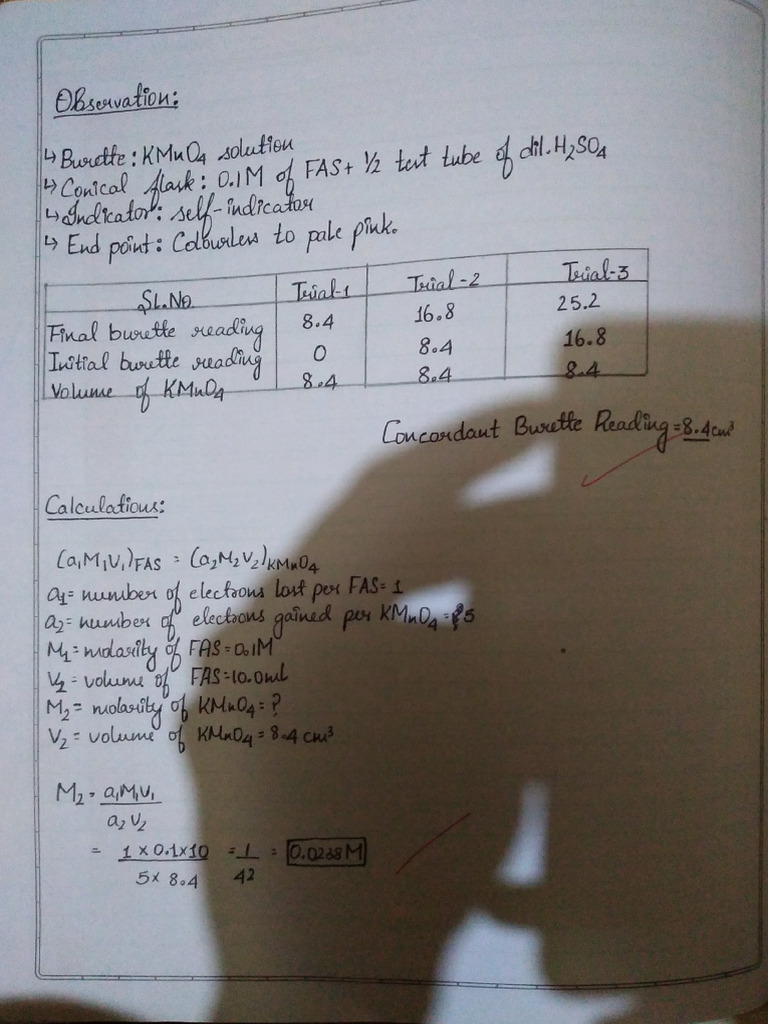 Observation:
↳ Burette: KMnO4 solution
↳ Conical flask: 0.1M of FAS + 1/2 test tube of dil. H2SO4
↳ Indicator: self-indicator
↳ End point: Colourless to pale pink.
SL.No. Trial-1 Trial-2 Trial-3
Final burette reading 8.4 16.8 25.2
Initial burette reading 0 8.4 16.8
Volume of KMnO4 8.4 8.4 8.4
Concordant Burette Reading = 8.4 cm³
Calculations:
(a1M1V1)FAS = (a2M2V2)KMnO4
a1 = number of electrons lost per FAS = 1
a2 = number of electrons gained per KMnO4 = 5
M1 = molarity of FAS = 0.1M
V2 = volume of FAS = 10.0ml
M2 = molarity of KMnO4 = ?
V2 = volume of KMnO4 = 8.4 cm³
M2 = a1M1V1
a2V2
= 1 × 0.1 × 10 = 1 = 0.0238M
5 × 8.4 42